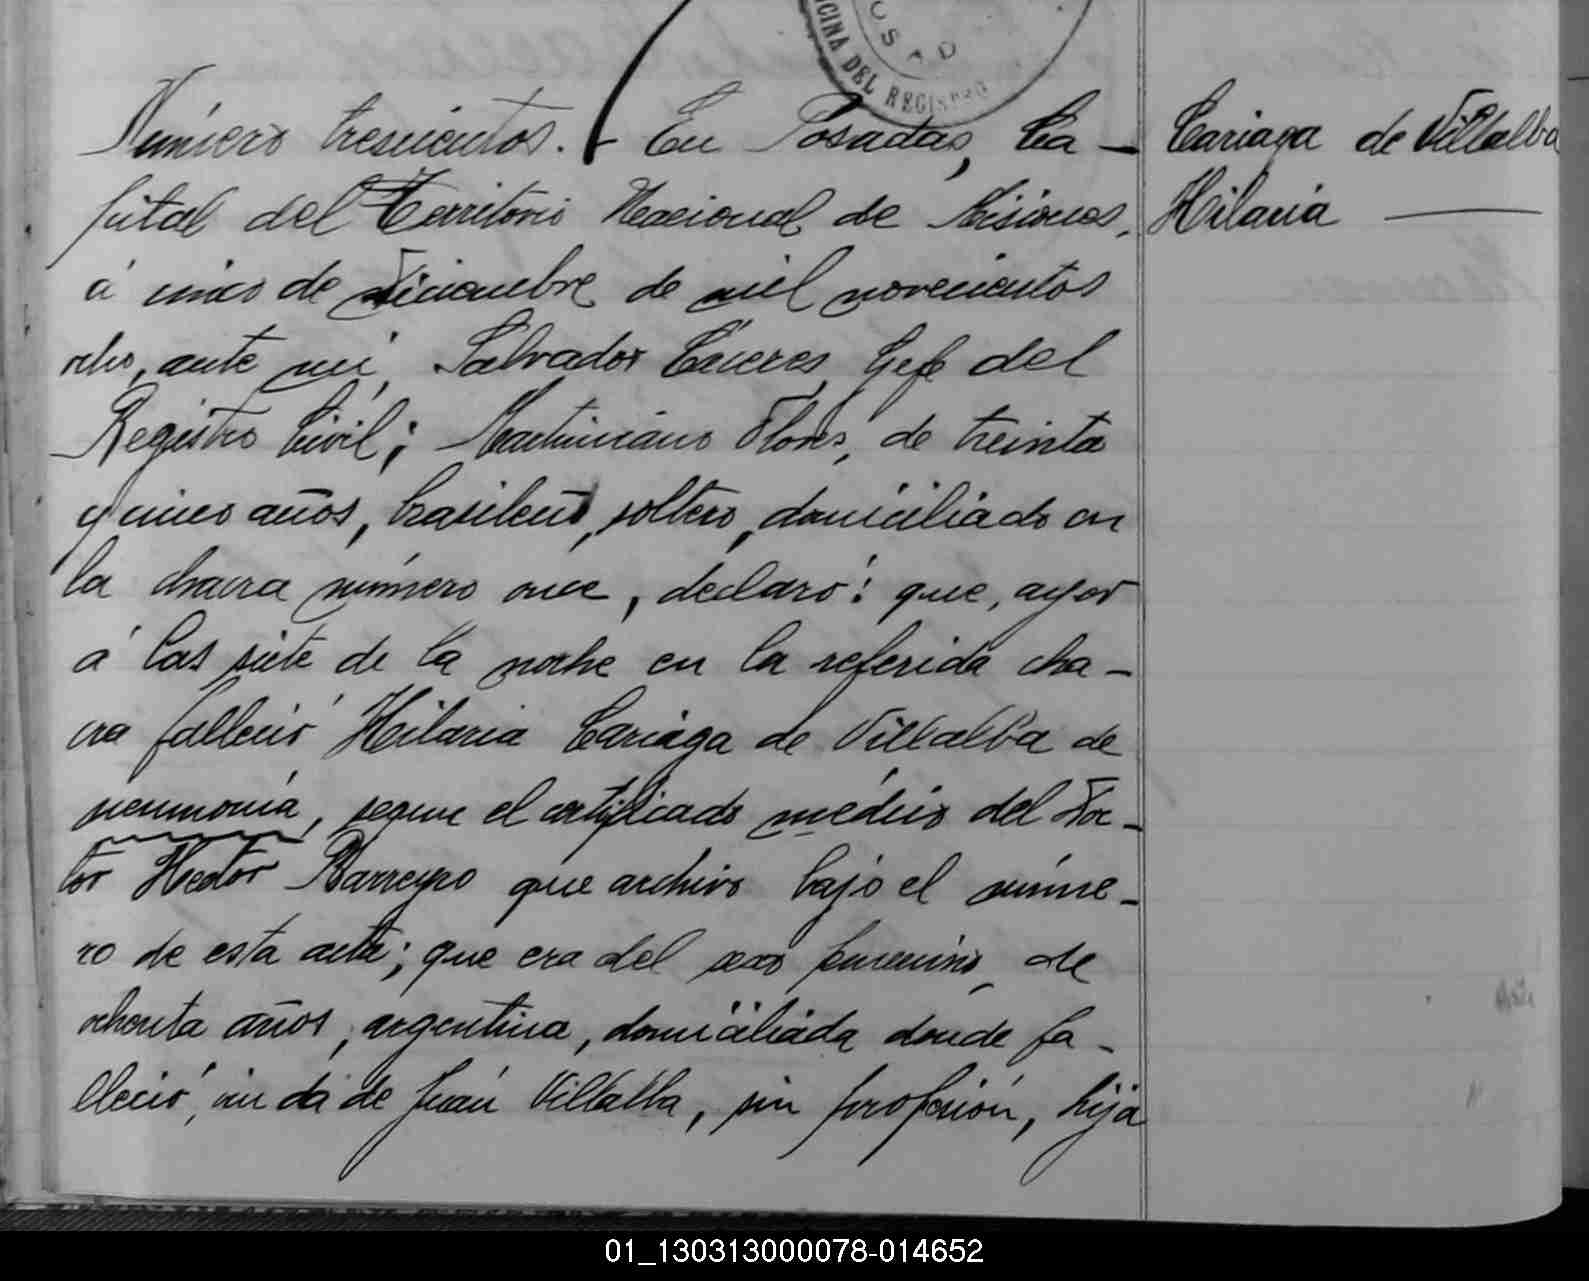 OFICINA DEL REGISTRO
POSAD
Número trescientos. - En Posadas, Ca-
pital del Territorio Nacional de Misiones,
á cinco de Diciembre de mil novecientos
ocho, ante mí, Salvador Cáceres, Gefe del
Registro Civil; Martiniano Flores, de treinta
y cinco años, brasileño, soltero, domiciliado en
la chacra número once, declaró: que, ayer
á las siete de la noche en la referida cha-
cra falleció Hilaria Cariaga de Villalba de
neumonía, segun el certificado médico del Doc-
tor Hector Barreyro que archivo bajo el núme-
ro de esta acta; que era del sexo femenino, de
ochenta años, argentina, domiciliada donde fa-
lleció, viuda de Juan Villalba, sin profesión, hija
Cariaga de Villalba
Hilaria
01_130313000078-014652